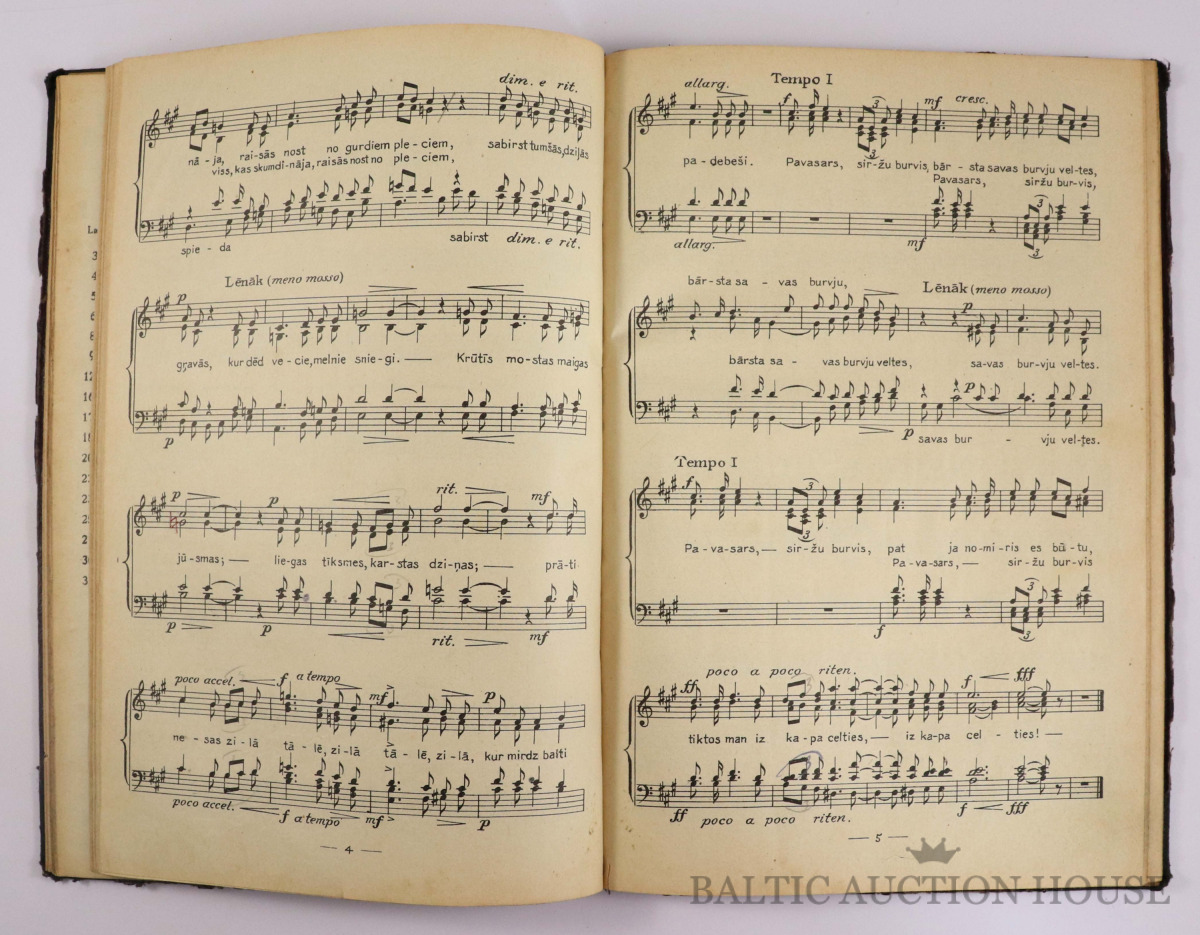 dim. e rit.
nā-ja, rai-sās nost no gurdiem ple-ciem, sabirst tumšās, dziļās
viss, kas skumdi-nāja, raisās nost no ple-ciem,
spie-da sabirst dim. e rit.
Lēnāk (meno mosso)
p
gravās, kur dēd ve-cie, melnie snie-gi. — Krūtīs mo-stas maigas
p
p p rit. mf
jū-smas; — lie-gas tiksmes, kar-stas dzi-ņas; — prā-ti
p p rit. mf
poco accel. f a tempo mf p
ne-sas zi-lā tā-lē, zi-lā tā-lē, zi-lā, kur mirdz balti
poco accel. f a tempo mf p
— 4 —
La
3
4
5
6
8
9
12
16
17
18
30
allarg. Tempo I
f 3 mf cresc.
3
pa-debeši. Pavasars, sir-žu burvis, bār-sta savas burvju vel-tes,
Pavasars, siržu bur-vis,
allarg. mf 3
3
bār-sta sa-vas burvju, Lēnāk (meno mosso)
p
bārsta sa-vas burvju veltes, sa-vas bur-vju vel-tes.
p
p savas bur-vju vel-tes.
Tempo I
f 3
3
Pa-va-sars, — sir-žu burvis, pat ja no-mi-ris es bū-tu,
Pa-va-sars, — sir-žu bur-vis
f 3
3
poco a poco riten.
ff f fff
tiktos man iz ka-pa celties, — iz ka-pa cel-ties! —
ff poco a poco riten. f fff
— 5 —
BALTIC AUCTION HOUSE